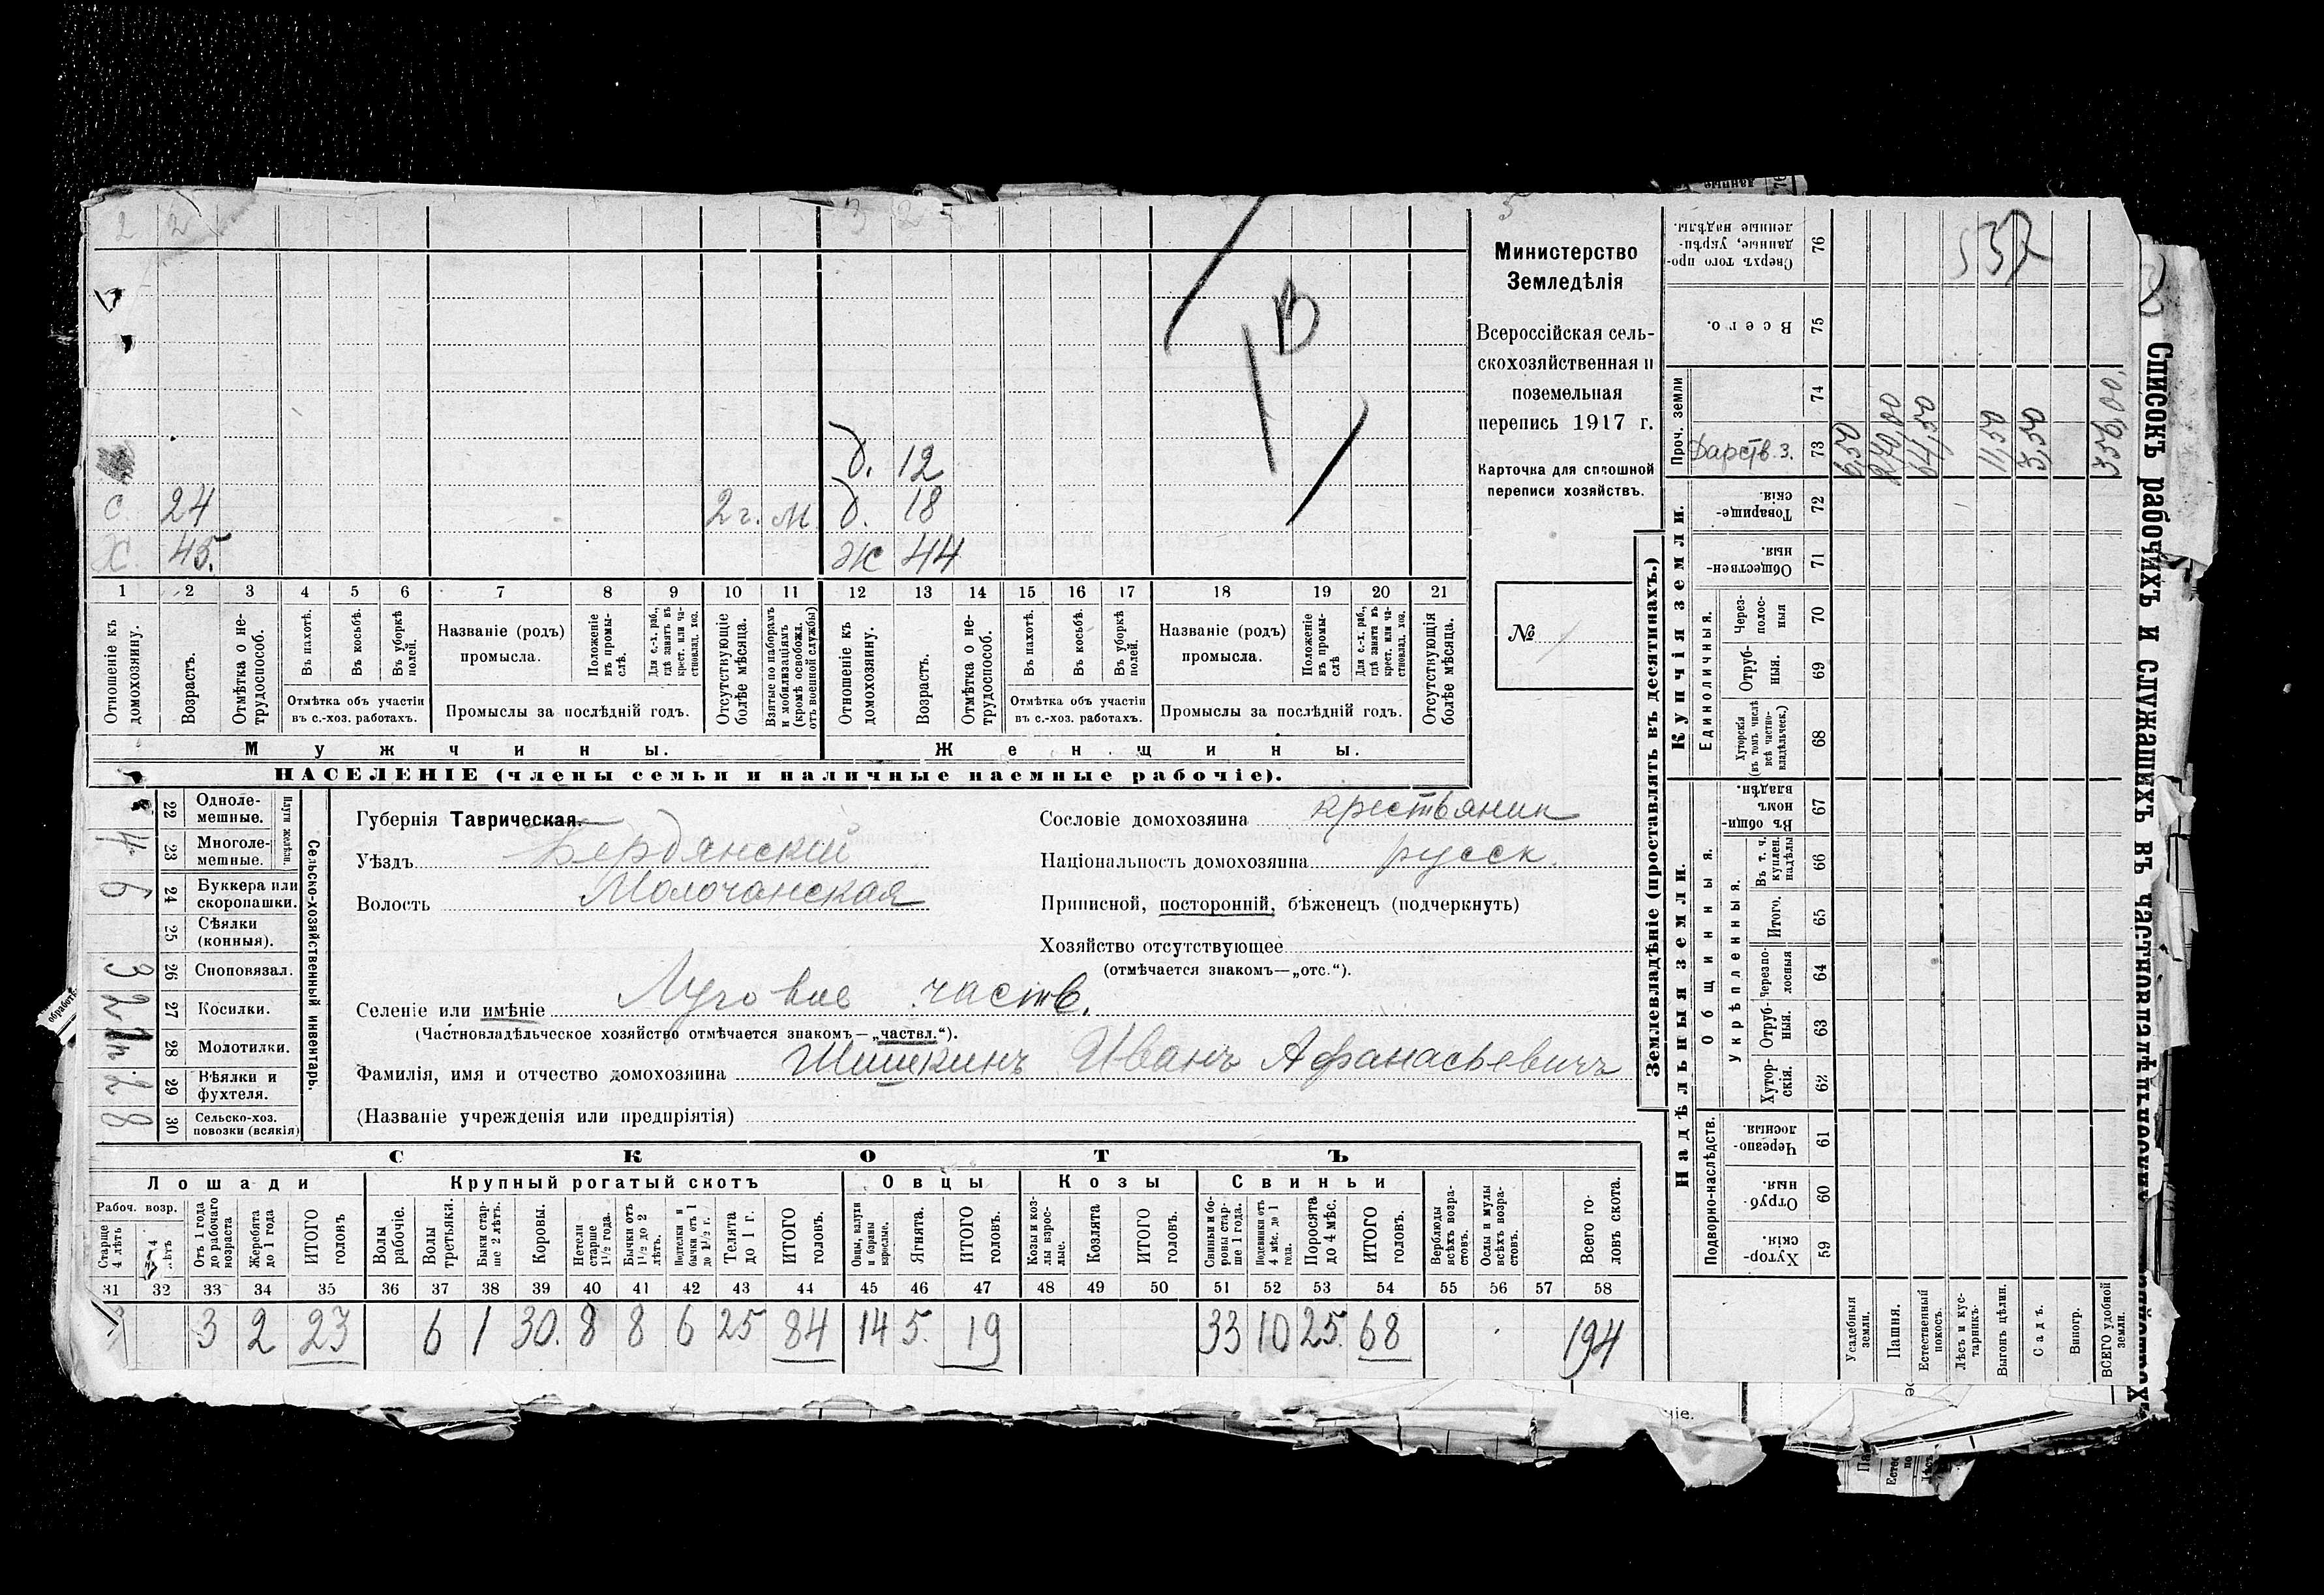 2 2 3 2
д. 12
с. 24 2 г. м д. 18
Х 45. ж 44
1 2 3 4 5 6 7 8 9 10 11 12 13 14 15 16 17 18 19 20 21
Отношеніе къ домохозяину.
Возрастъ.
Отмѣтка о не-трудоспособ.
Въ пахотѣ.
Въ косьбѣ.
Въ уборкѣ полей.
Отмѣтка объ участіи
въ с.-хоз. работахъ.
Названіе (родъ)
промысла.
Положеніе въ промы-слѣ.
Для с.-х. раб., гдѣ занятъ въ крест. или ча-стновлад. хоз.
Промыслы за послѣдній годъ.
Отсутствующіе болѣе мѣсяца.
Взятые по наборамъ и мобилизаціямъ (кромѣ освобожд. отъ военной службы)
Отношеніе къ домохозяину.
Возрастъ.
Отмѣтка о не-трудоспособ.
Въ пахотѣ.
Въ косьбѣ.
Въ уборкѣ полей.
Отмѣтка объ участіи
въ с.-хоз. работахъ.
Названіе (родъ)
промысла.
Положеніе въ промы-слѣ
Для с.-х. раб., гдѣ занята въ крест. или ча-стновлад. хоз.
Промыслы за послѣдній годъ.
Отсутствующія болѣе мѣсяца.
Мужчины. Женщины.
НАСЕЛЕНІЕ (члены семьи и наличные наемные рабочіе).
5
Министерство
Земледѣлія
Всероссійская сель-
скохозяйственная и
поземельная
перепись 1917 г.
Карточка для сплошной
переписи хозяйствъ.
№ 1
22 Одноле-мешные.
4 23 Многоле-мешные.
Плуги желѣзн.
6 24 Буккера или скоропашки.
25 Сѣялки (конныя).
3 26 Сноповязал.
2 27 Косилки.
28 Молотилки.
2 29 Вѣялки и фухтеля.
8 30 Сельско-хоз. повозки (всякія)
Сельско-хозяйственный инвентарь.
Губернія Таврическая.
Уѣздъ Бердянскій
Волость Молочанская
Сословіе домохозяина крестьянин
Національность домохозяина русск.
Приписной, посторонній, бѣженецъ (подчеркнуть)
Хозяйство отсутствующее
(отмѣчается знакомъ—„отс.“).
Селеніе или имѣніе Луговое частв.
(Частновладѣльческое хозяйство отмѣчается знакомъ—„частвл.“).
Фамилія, имя и отчество домохозяина Шишкинъ Иванъ Афанасьевичъ
(Названіе учрежденія или предпріятія)
СКОТЪ
Лошади Крупный рогатый скотъ Овцы Козы Свиньи
Рабоч. возр.
Старше 4 лѣтъ
4 лѣтъ
Отъ 1 года до рабочаго возраста
Жеребята до 1 года
ИТОГО головъ
Волы рабочіе.
Волы третьяки.
Быки стар-ше 2 лѣтъ.
Коровы.
Нетели старше 1½ года.
Бычки отъ 1½ до 2 лѣтъ.
Подтелки и бычки отъ 1 до 1½ г.
Телята до 1 г.
ИТОГО головъ.
Овцы, валухи и бараны взрослые.
Ягнята.
ИТОГО головъ.
Козы и коз-лы взрос-лые.
Козлята
ИТОГО головъ.
Свиньи и бо-ровы стар-ше 1 года.
Подсвинки отъ 4 мѣс. до 1 года.
Поросята до 4 мѣс.
ИТОГО головъ.
Верблюды всѣхъ возра-стовъ.
Ослы и мулы всѣхъ возра-стовъ.
Всего го-ловъ скота.
31 32 33 34 35 36 37 38 39 40 41 42 43 44 45 46 47 48 49 50 51 52 53 54 55 56 57 58
3 2 23 6 1 30. 8 8 6 25 84 14 5. 19 33 10 25. 68 194
Землевладѣніе (проставлять въ десятинахъ.)
Купчія земли.
Надѣльныя земли.
Сверхъ того про-данные, укрѣп-ленные надѣлы. 76
537
Всего. 75
Проч. земли
74
Дарств. з. 73
Товарище-скія. 72
Обществен-ныя. 71
Единоличныя.
Через-полос-ныя 70
Отруб-ныя. 69
Хуторскія (въ томъ числѣ всѣ частно-владѣльческ.) 68
Общинныя.
Въ общи-номъ владѣн. 67
Укрѣпленныя.
Въ т. ч. куплен. надѣлы 66
Итого. 65
Черезпо-лосныя 64
Отруб-ныя. 63
Хутор-скія. 62
Подворно-наслѣдств.
Черезпо-лосныя 61
Отруб-ныя. 60
Хутор-скія. 59
Усадебныя земли.
Пашня.
Естественный покосъ.
Лѣсъ и кус-тарникъ.
Выгонъ цѣлин.
Садъ.
Виногр.
ВСЕГО удобной земли.
Списокъ рабочихъ и служащихъ въ частновладѣльческихъ